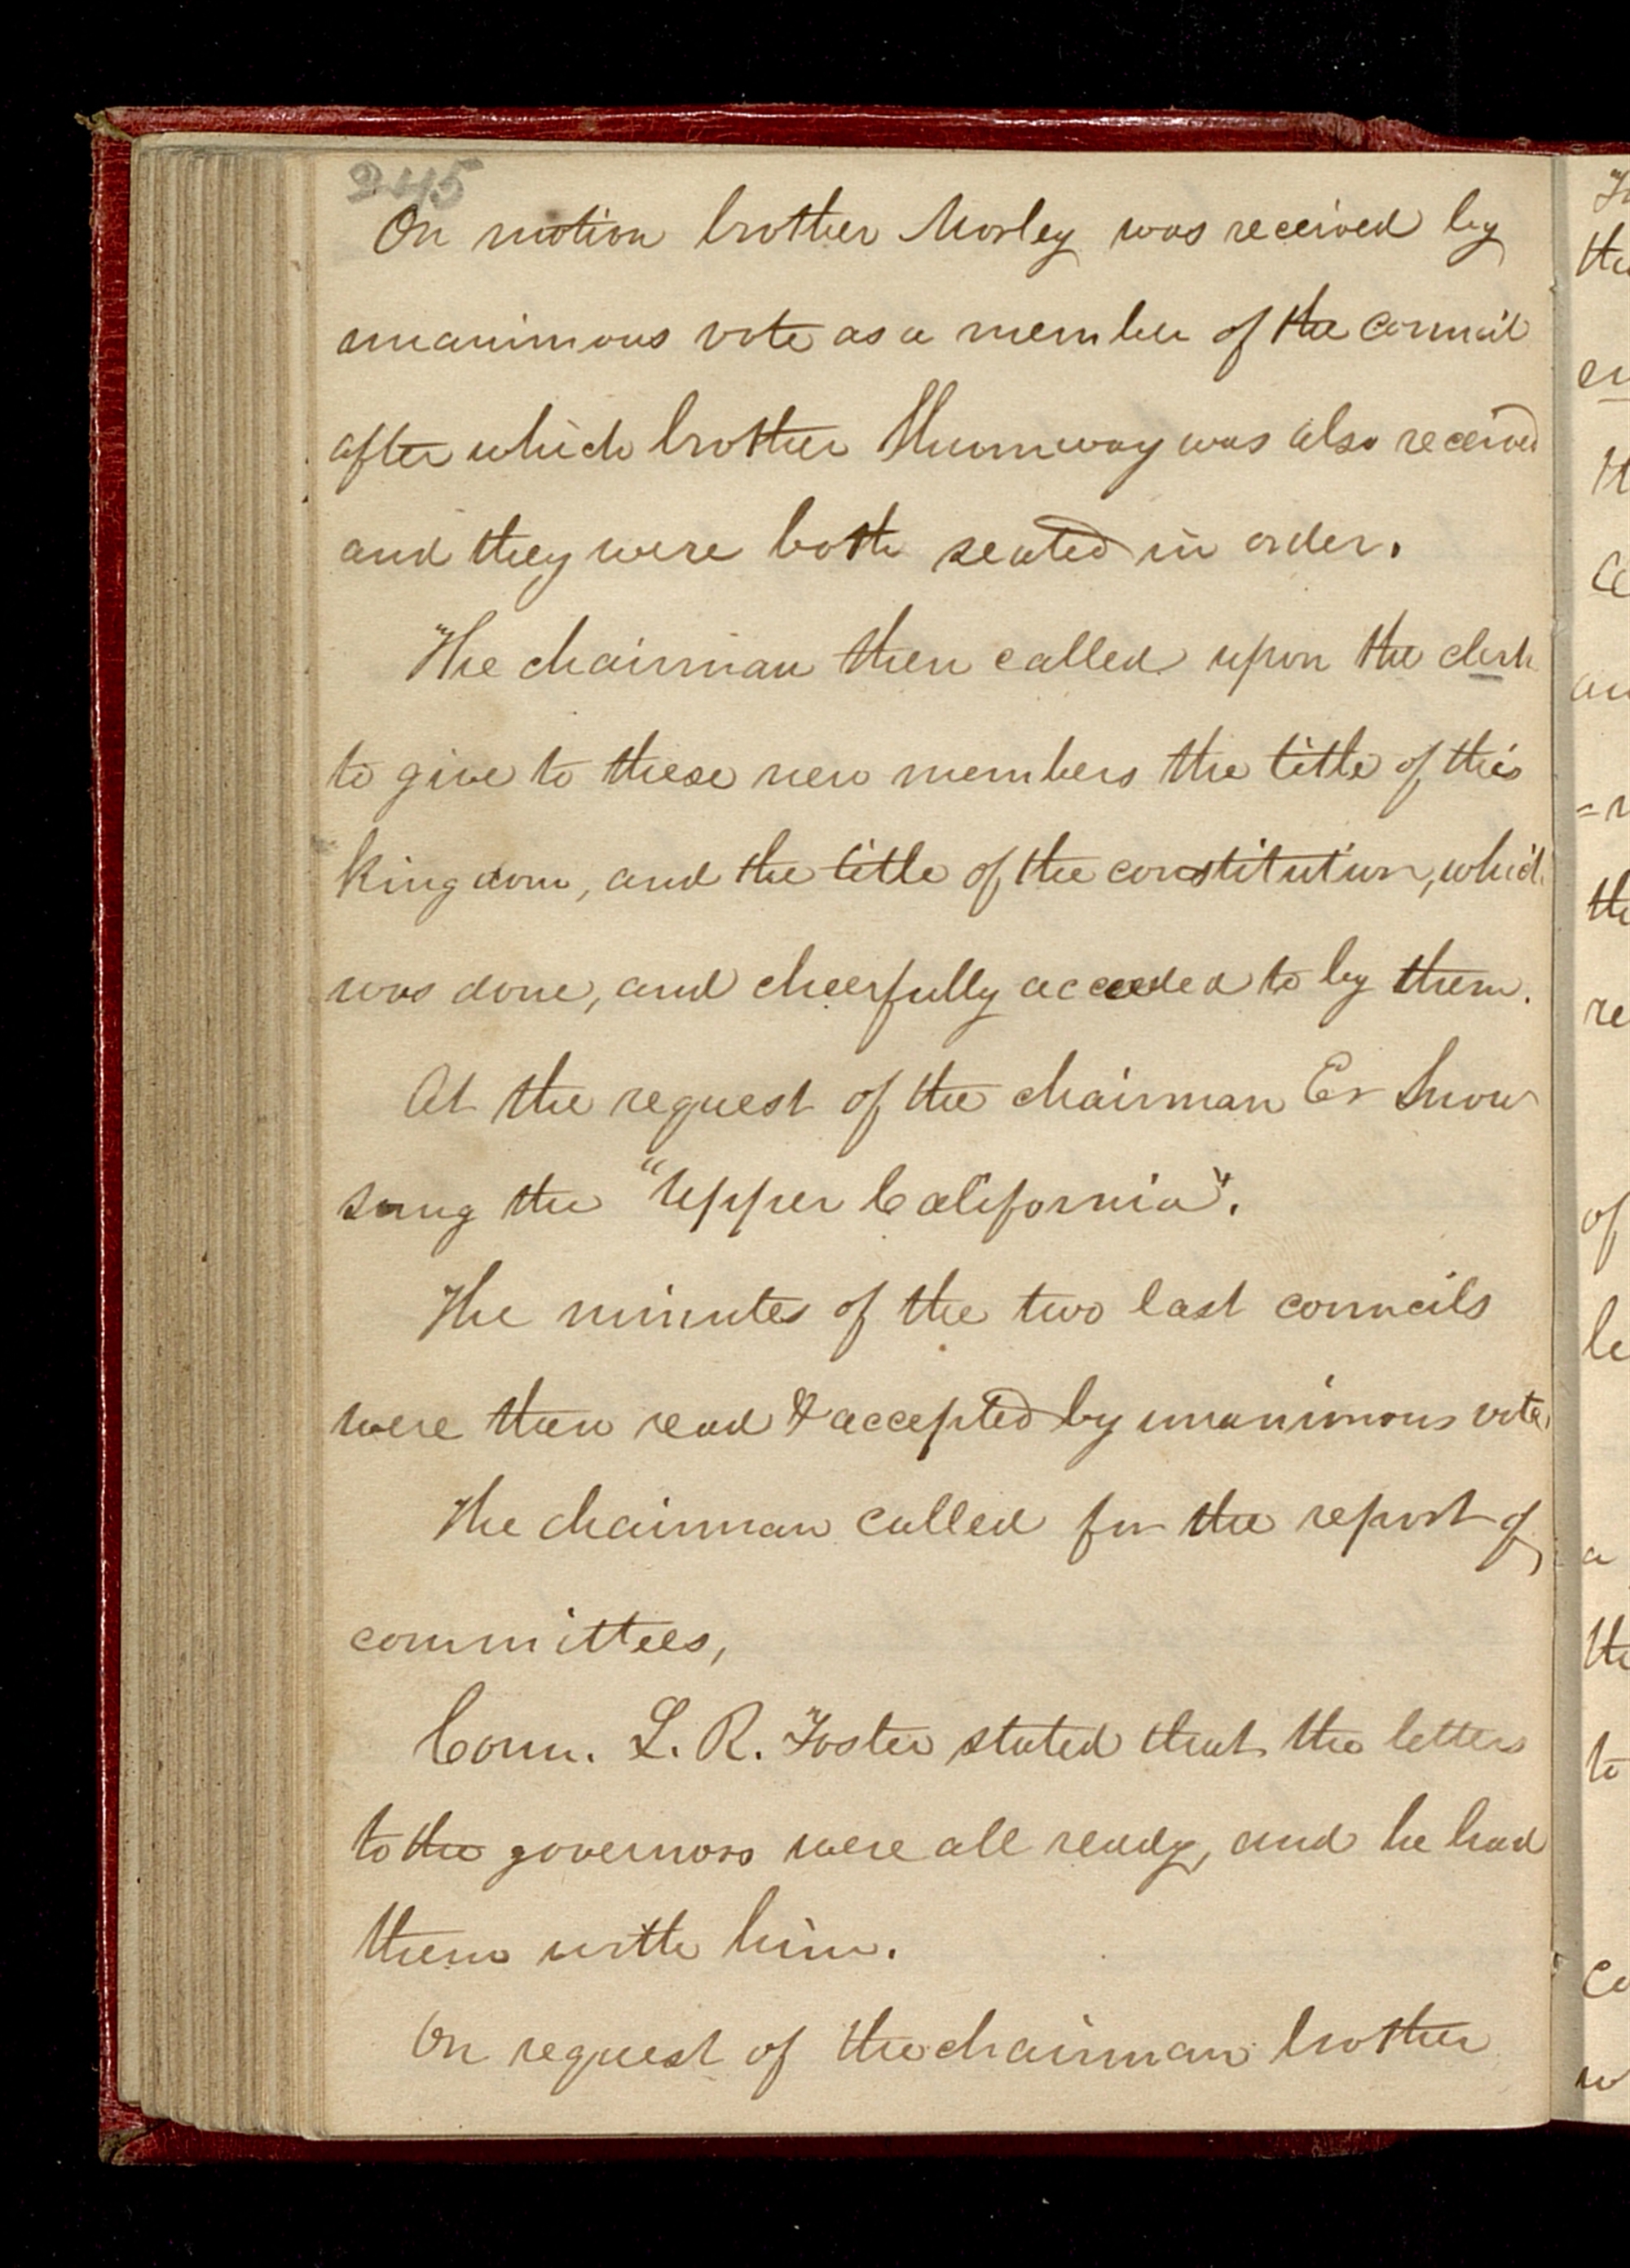 245
On motion brother Morley was received by
unanimous vote as a member of the council
after which brother Shumway was also received
and they were both seated in order.
The chairman then called upon the clerk
to give to these new members the title of this
kingdom, and the title of the constitution, which
was done, and cheerfully acceded to by them.
At the request of the chairman Er Snow
sung the "Upper California".
The minutes of the two last councils
were then read & accepted by unanimous vote
The chairman called for the report of
committees,
Coun. L. R. Foster stated that the letters
to the governors were all ready, and he had
them with him.
On request of the chairman brother